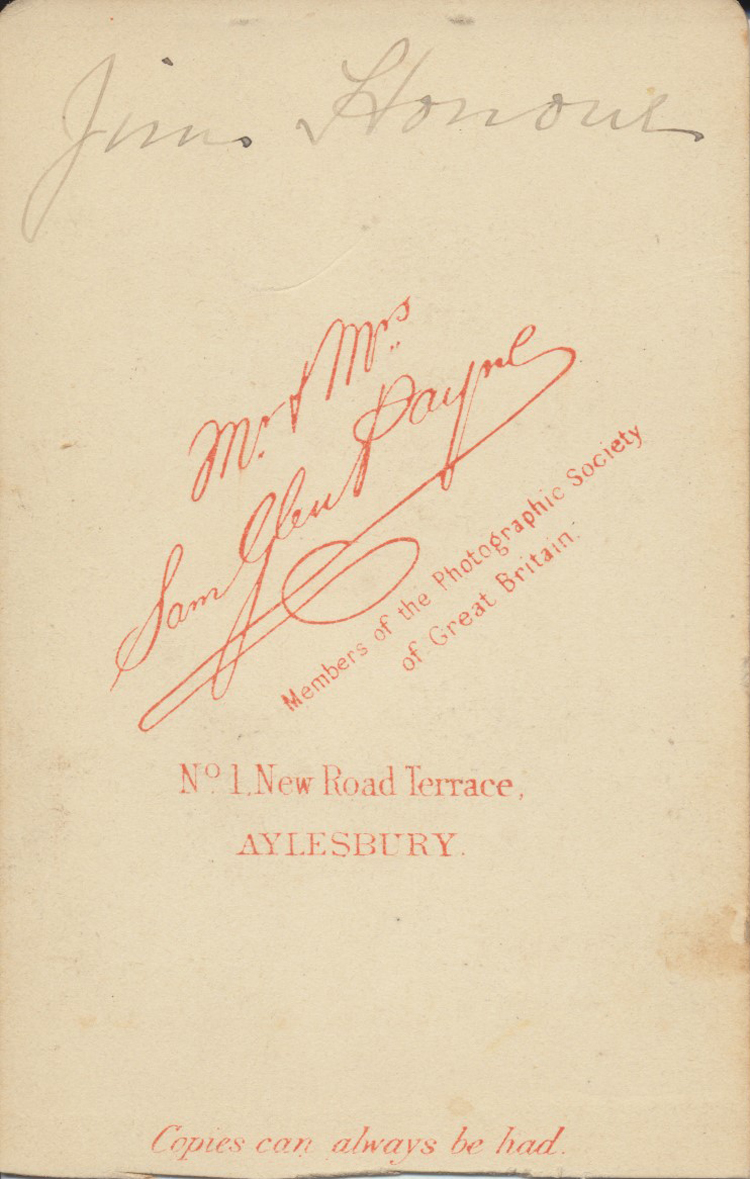 Jim Honour
Mr. & Mrs
Sam Glen Payne
Members of the Photographic Society
of Great Britain.
No. 1, New Road Terrace,
AYLESBURY.
Copies can always be had.